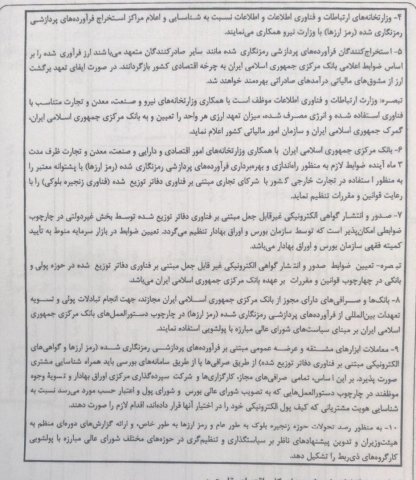 ۴- وزارتخانه‌های ارتباطات و فناوری اطلاعات و اطلاعات نسبت به شناسایی و اعلام مراکز استخراج فرآورده‌های پردازشی
رمزنگاری شده (رمز ارزها) با وزارت نیرو همکاری می‌نمایند.
۵- استخراج‌کنندگان فرآورده‌های پردازشی رمزنگاری شده مانند سایر صادرکنندگان متعهد می‌باشند ارز فرآوری شده را بر
اساس ضوابط اعلامی بانک مرکزی جمهوری اسلامی ایران به چرخه اقتصادی کشور بازگردانند. در صورت ایفای تعهد برگشت
ارز از مشوق‌های مالیاتی درآمدهای صادراتی بهره‌مند خواهند شد.
تبصره: وزارت ارتباطات و فناوری اطلاعات موظف است با همکاری وزارتخانه‌های نیرو و صنعت، معدن و تجارت متناسب با
فناوری استفاده شده و انرژی مصرف شده، میزان تعهد ارزی هر واحد را تعیین و به بانک مرکزی جمهوری اسلامی ایران،
گمرک جمهوری اسلامی ایران و سازمان امور مالیاتی کشور اعلام نماید.
۶- بانک مرکزی جمهوری اسلامی ایران با همکاری وزارتخانه‌های امور اقتصادی و دارایی و صنعت، معدن و تجارت ظرف مدت
۳ ماه آینده ضوابط لازم به منظور راه‌اندازی و بهره‌برداری فرآورده‌های پردازشی رمزنگاری شده (رمز ارزها) با پشتوانه معتبر را
به منظور استفاده در تجارت خارجی کشور با شرکای تجاری مبتنی بر فناوری دفاتر توزیع شده (فناوری زنجیره بلوکی) را با
رعایت قوانین و مقررات تنظیم نماید.
۷- صدور و انتشار گواهی الکترونیکی غیرقابل جعل مبتنی بر فناوری دفاتر توزیع شده توسط بخش غیردولتی در چارچوب
ضوابطی امکان‌پذیر است که توسط سازمان بورس و اوراق بهادار تنظیم می‌گردد. تعیین ضوابط در بازار سرمایه منوط به تأیید
کمیته فقهی سازمان بورس و اوراق بهادار می‌باشد.
تبصره- تعیین ضوابط صدور و انتشار گواهی الکترونیکی غیر قابل جعل مبتنی بر فناوری دفاتر توزیع شده در حوزه پولی و
بانکی در چهارچوب قوانین و مقررات بر عهده بانک مرکزی جمهوری اسلامی ایران می‌باشد.
۸- بانک‌ها و صرافی‌های دارای مجوز از بانک مرکزی جمهوری اسلامی ایران مجازند، جهت انجام تبادلات پولی و تسویه
تعهدات بین‌المللی از فرآورده‌های پردازشی رمزنگاری شده (رمز ارزها) در چارچوب دستورالعمل‌های بانک مرکزی جمهوری
اسلامی ایران بر مبنای سیاست‌های شورای عالی مبارزه با پولشویی استفاده نمایند.
۹- معاملات ابزارهای مشتقه و عرضه عمومی مبتنی بر فرآورده‌های پردازشی رمزنگاری شده (رمز ارزها و گواهی‌های
الکترونیکی مبتنی بر فناوری دفاتر توزیع شده) از طریق صرافی‌ها یا از طریق سامانه‌های بورسی باید همراه شناسایی مشتری
صورت پذیرد. بر این اساس، تمامی صرافی‌های مجاز، کارگزاری‌ها و شرکت سپرده‌گذاری مرکزی اوراق بهادار و تسویه وجوه
موظفند در چارچوب دستورالعمل‌هایی که به تصویب شورای عالی بورس و شورای پول و اعتبار حسب مورد می‌رسد نسبت به
شناسایی هویت مشتریانی که کیف پول الکترونیکی خود را در اختیار آنها قرار داده‌اند، اقدام لازم را صورت دهند.
۱۰- به منظور رصد تحولات حوزه زنجیره بلوک به طور عام و رمز ارزها به طور خاص، و ارائه گزارش‌های دوره‌ای منظم به
هیئت‌وزیران و تدوین پیشنهادهای ناظر بر سیاستگذاری و تنظیم‌گری در حوزه‌های مختلف شورای عالی مبارزه با پولشویی
کارگروه‌های ذی‌ربط را تشکیل دهد.